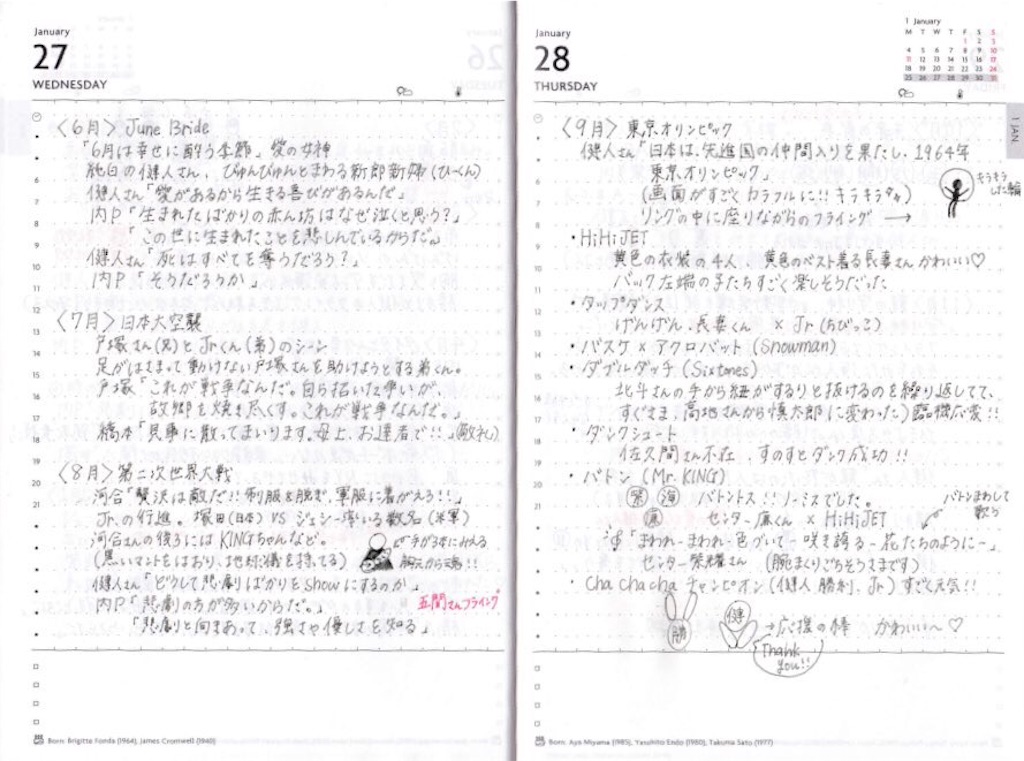 January
27
WEDNESDAY
〈6月〉 June Bride
「6月は幸せに酔う季節」愛の女神
純白の健人さん、びゅんびゅんとまわる新郎新婦(ひーくん)
健人さん「愛があるから生きる喜びがあるんだ」
内P「生まれたばかりの赤ん坊はなぜ泣くと思う?」
「この世に生まれたことを悲しんでいるからだ。」
健人さん「死はすべてを奪うだろう?」
内P「そうだろうか」
〈7月〉日本大空襲
戸塚さん(兄)とJrくん(弟)のシーン
足がはさまって動けない戸塚さんを助けようとする弟くん。
戸塚「これが戦争なんだ。自ら招いた争いが、
故郷を焼き尽くす。これが戦争なんだ。」
橋本「見事に散ってまいります。母上、お達者で!!」(敬礼)
〈8月〉第二次世界大戦
河合「贅沢は敵だ!!制服を脱ぎ、軍服に着がえろ!!」
Jr.の行進。塚田(日本) VS ジェシー率いる数名(米軍)
河合さんの後ろにはKINGちゃんなど。
手が3本にみえる
(黒いマントをはおり、地球儀を持てる)
胸元から魂!!
健人さん「どうして悲劇ばかりをshowにするのか」
内P「悲劇の方が多いからだ。」
五関さんフライング
「悲劇と向きあって、強さや優しさを知る」
Born: Brigitte Fonda (1964), James Cromwell (1940)
January
28
THURSDAY
1 January
M T W T F S S
1 2 3
4 5 6 7 8 9 10
11 12 13 14 15 16 17
18 19 20 21 22 23 24
25 26 27 28 29 30 31
1 JAN.
〈9月〉東京オリンピック
健人さん「日本は、先進国の仲間入りを果たし、1964年
東京オリンピック」
(画面がすごくカラフルに!!キラキラ)
キラキラした輪
リングの中に座りながらのフライング →
・HiHiJET
黄色の衣装の4人、黄色のベスト着る長妻さんかわいい♡
バック左端の子たちすごく楽しそうだった
・タップダンス
げんげん、長妻くん × Jr(ちびっこ)
・バスケ×アクロバット(Snowman)
・ダブルダッチ(Sixtones)
北斗さんの手から紐がするりと抜けるのを繰り返してて、
すぐさま、高地さんから慎太郎に変わった)臨機応変!!
・ダンクシュート
佐久間さん不在、すのすとダンク成功!!
・バトン(Mr.KING)
紫 海 バトントス!!ノーミスでした。
廉 センター廉くん × HiHiJET
バトンまわして歌う
「まわれーまわれー色づいて 咲き誇るー花たちのようにー」
センター紫耀さん (腕まくりごちそうさまです)
・Cha cha cha チャンピオン(健人、勝利、Jr)すごく元気!!
勝 健 →応援の棒 かわいい~♡
Thank you!!
Born: Aya Miyama (1985), Yasuhito Endo (1980), Takuma Sato (1977)